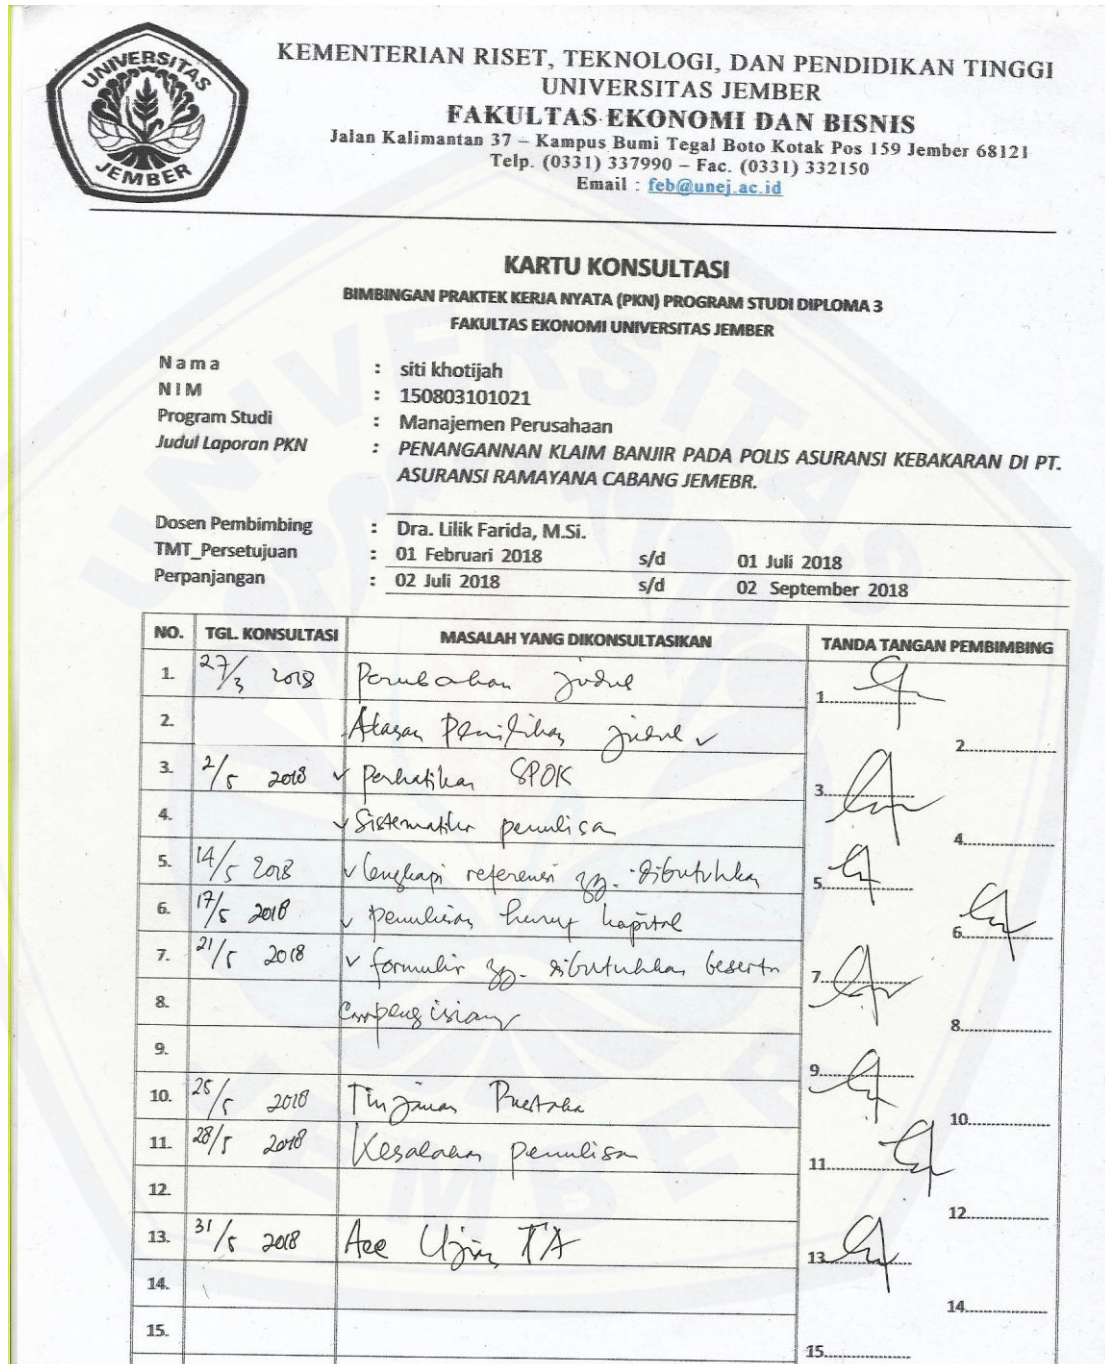 UNIVERSITAS
JEMBER
KEMENTERIAN RISET, TEKNOLOGI, DAN PENDIDIKAN TINGGI
UNIVERSITAS JEMBER
FAKULTAS EKONOMI DAN BISNIS
Jalan Kalimantan 37 – Kampus Bumi Tegal Boto Kotak Pos 159 Jember 68121
Telp. (0331) 337990 – Fac. (0331) 332150
Email : feb@unej.ac.id
KARTU KONSULTASI
BIMBINGAN PRAKTEK KERJA NYATA (PKN) PROGRAM STUDI DIPLOMA 3
FAKULTAS EKONOMI UNIVERSITAS JEMBER
N a m a : siti khotijah
N I M : 150803101021
Program Studi : Manajemen Perusahaan
Judul Laporan PKN : PENANGANNAN KLAIM BANJIR PADA POLIS ASURANSI KEBAKARAN DI PT.
ASURANSI RAMAYANA CABANG JEMEBR.
Dosen Pembimbing : Dra. Lilik Farida, M.Si.
TMT_Persetujuan : 01 Februari 2018 s/d 01 Juli 2018
Perpanjangan : 02 Juli 2018 s/d 02 September 2018
NO. TGL. KONSULTASI MASALAH YANG DIKONSULTASIKAN TANDA TANGAN PEMBIMBING
1. 27/3 2018 Perubahan judul 1
2. Alasan Pemilihan judul ✓ 2
3. 2/5 2018 ✓ Perhatikan SPOK 3
4. ✓ Sistematika penulisan 4
5. 14/5 2018 ✓ lengkapi referensi yg. dibutuhkan 5
6. 17/5 2018 ✓ penulisan huruf kapital 6
7. 21/5 2018 ✓ formulir yg. dibutuhkan beserta 7
8. pengisian 8
9. 9
10. 25/5 2018 Tinjauan Pustaka 10
11. 28/5 2018 Kesalahan penulisan 11
12. 12
13. 31/5 2018 Acc Ujian TA 13
14. 14
15. 15